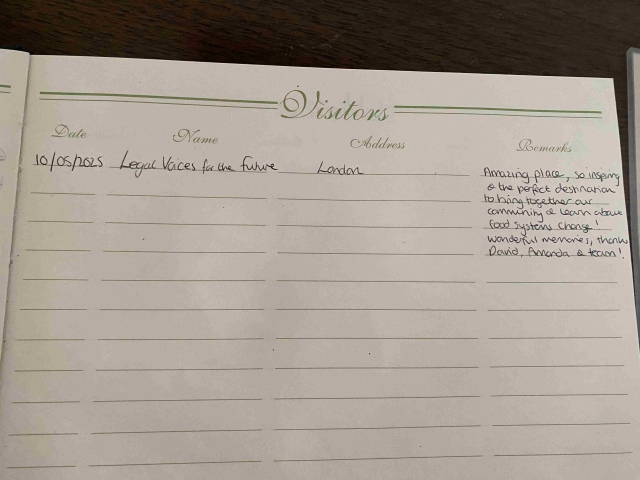 Visitors
Date Name Address Remarks
10/05/2025 Legal Voices for the Future London
Amazing place, so inspiring
& the perfect destination
to bring together our
community & learn about
food systems change!
wonderful memories, thanks
David, Amanda & team!